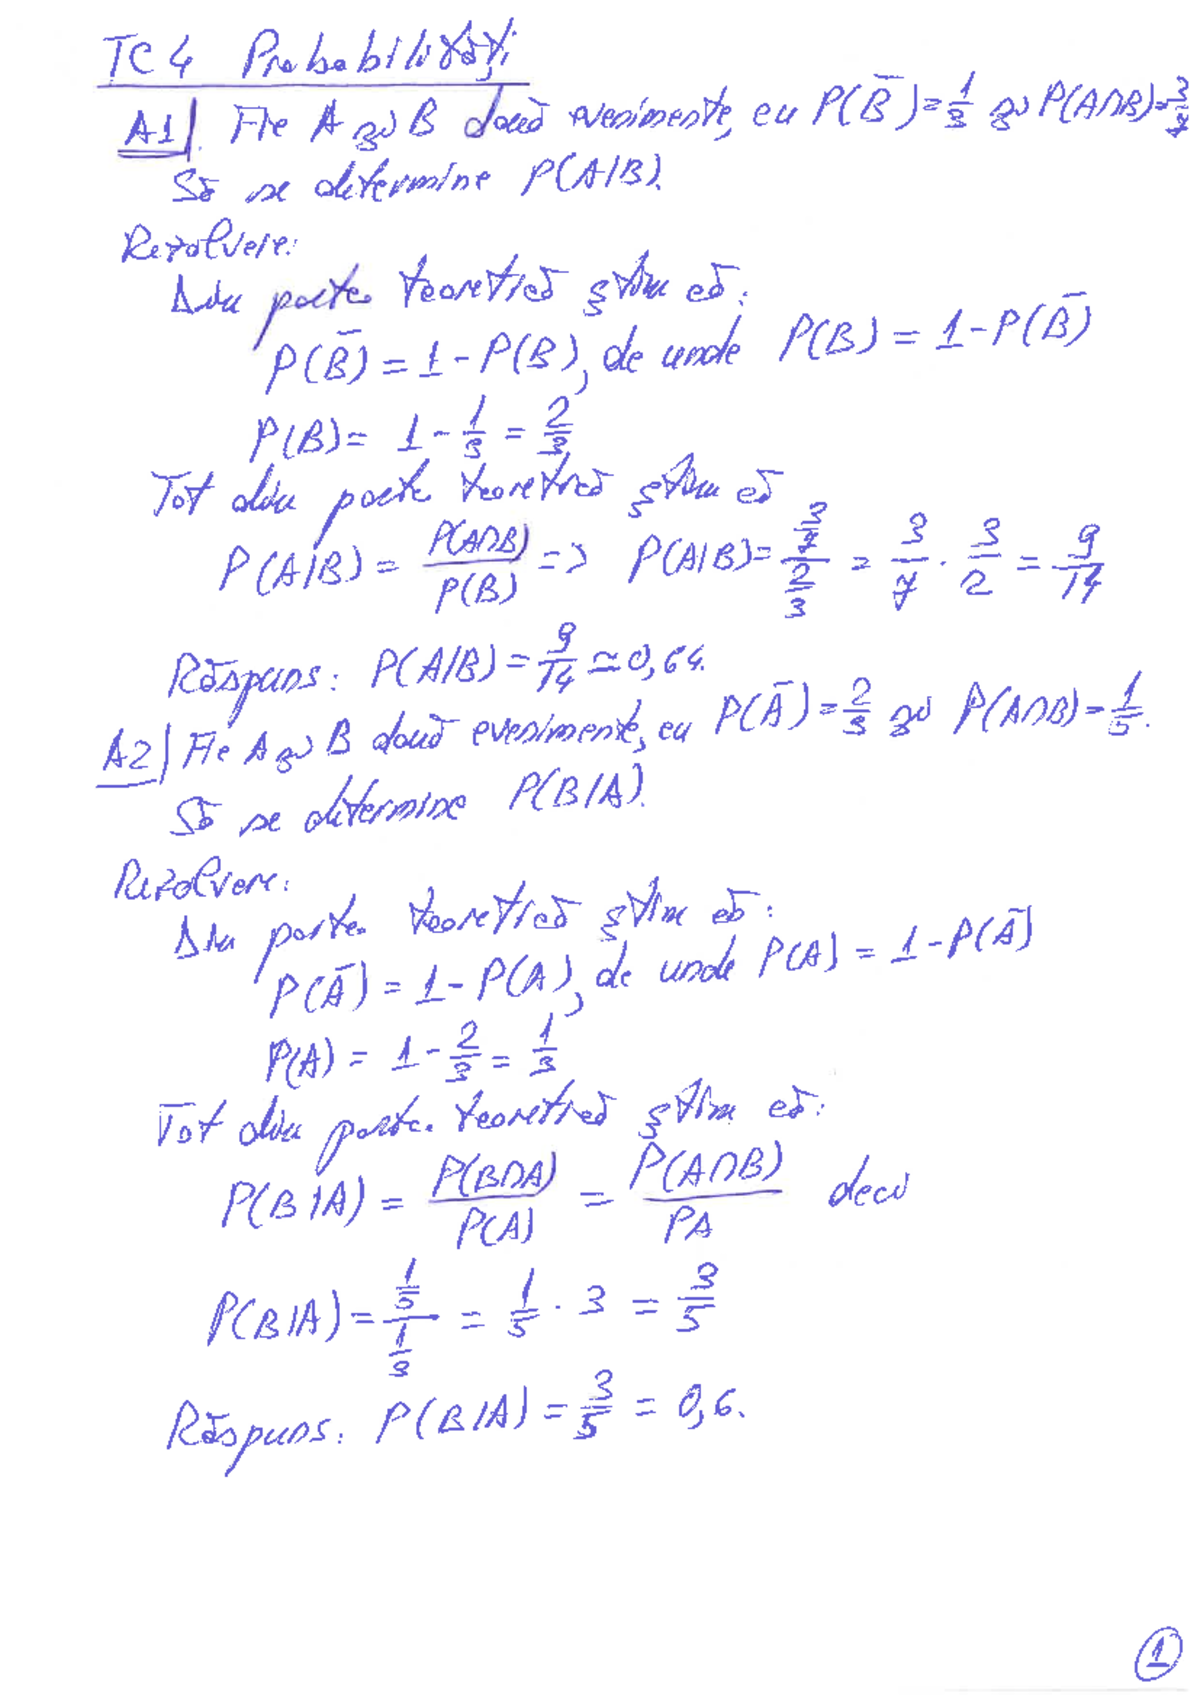 TC 4 Probabilități
A1|. Fie A și B două evenimente, cu P(B̄)=1/3 și P(A∩B)=3/7
Să se determine P(A/B).
Rezolvere:
Din parte teoretică știm că:
P(B̄) = 1 - P(B), de unde P(B) = 1 - P(B̄)
P(B) = 1 - 1/3 = 2/3
Tot din parte teoretică știm că
P(A/B) = P(A∩B)/P(B) => P(A/B) = (3/7)/(2/3) = 3/7 · 3/2 = 9/14
Răspuns: P(A/B) = 9/14 ≃ 0,64.
A2| Fie A și B două evenimente, cu P(Ā) = 2/3 și P(A∩B) = 1/5.
Să se determine P(B/A).
Rezolvere:
Din parte teoretică știm că:
P(Ā) = 1 - P(A), de unde P(A) = 1 - P(Ā)
P(A) = 1 - 2/3 = 1/3
Tot din parte teoretică știm că:
P(B/A) = P(B∩A)/P(A) = P(A∩B)/PA deci
P(B/A) = (1/5)/(1/3) = 1/5 · 3 = 3/5
Răspuns: P(B/A) = 3/5 = 0,6.
1